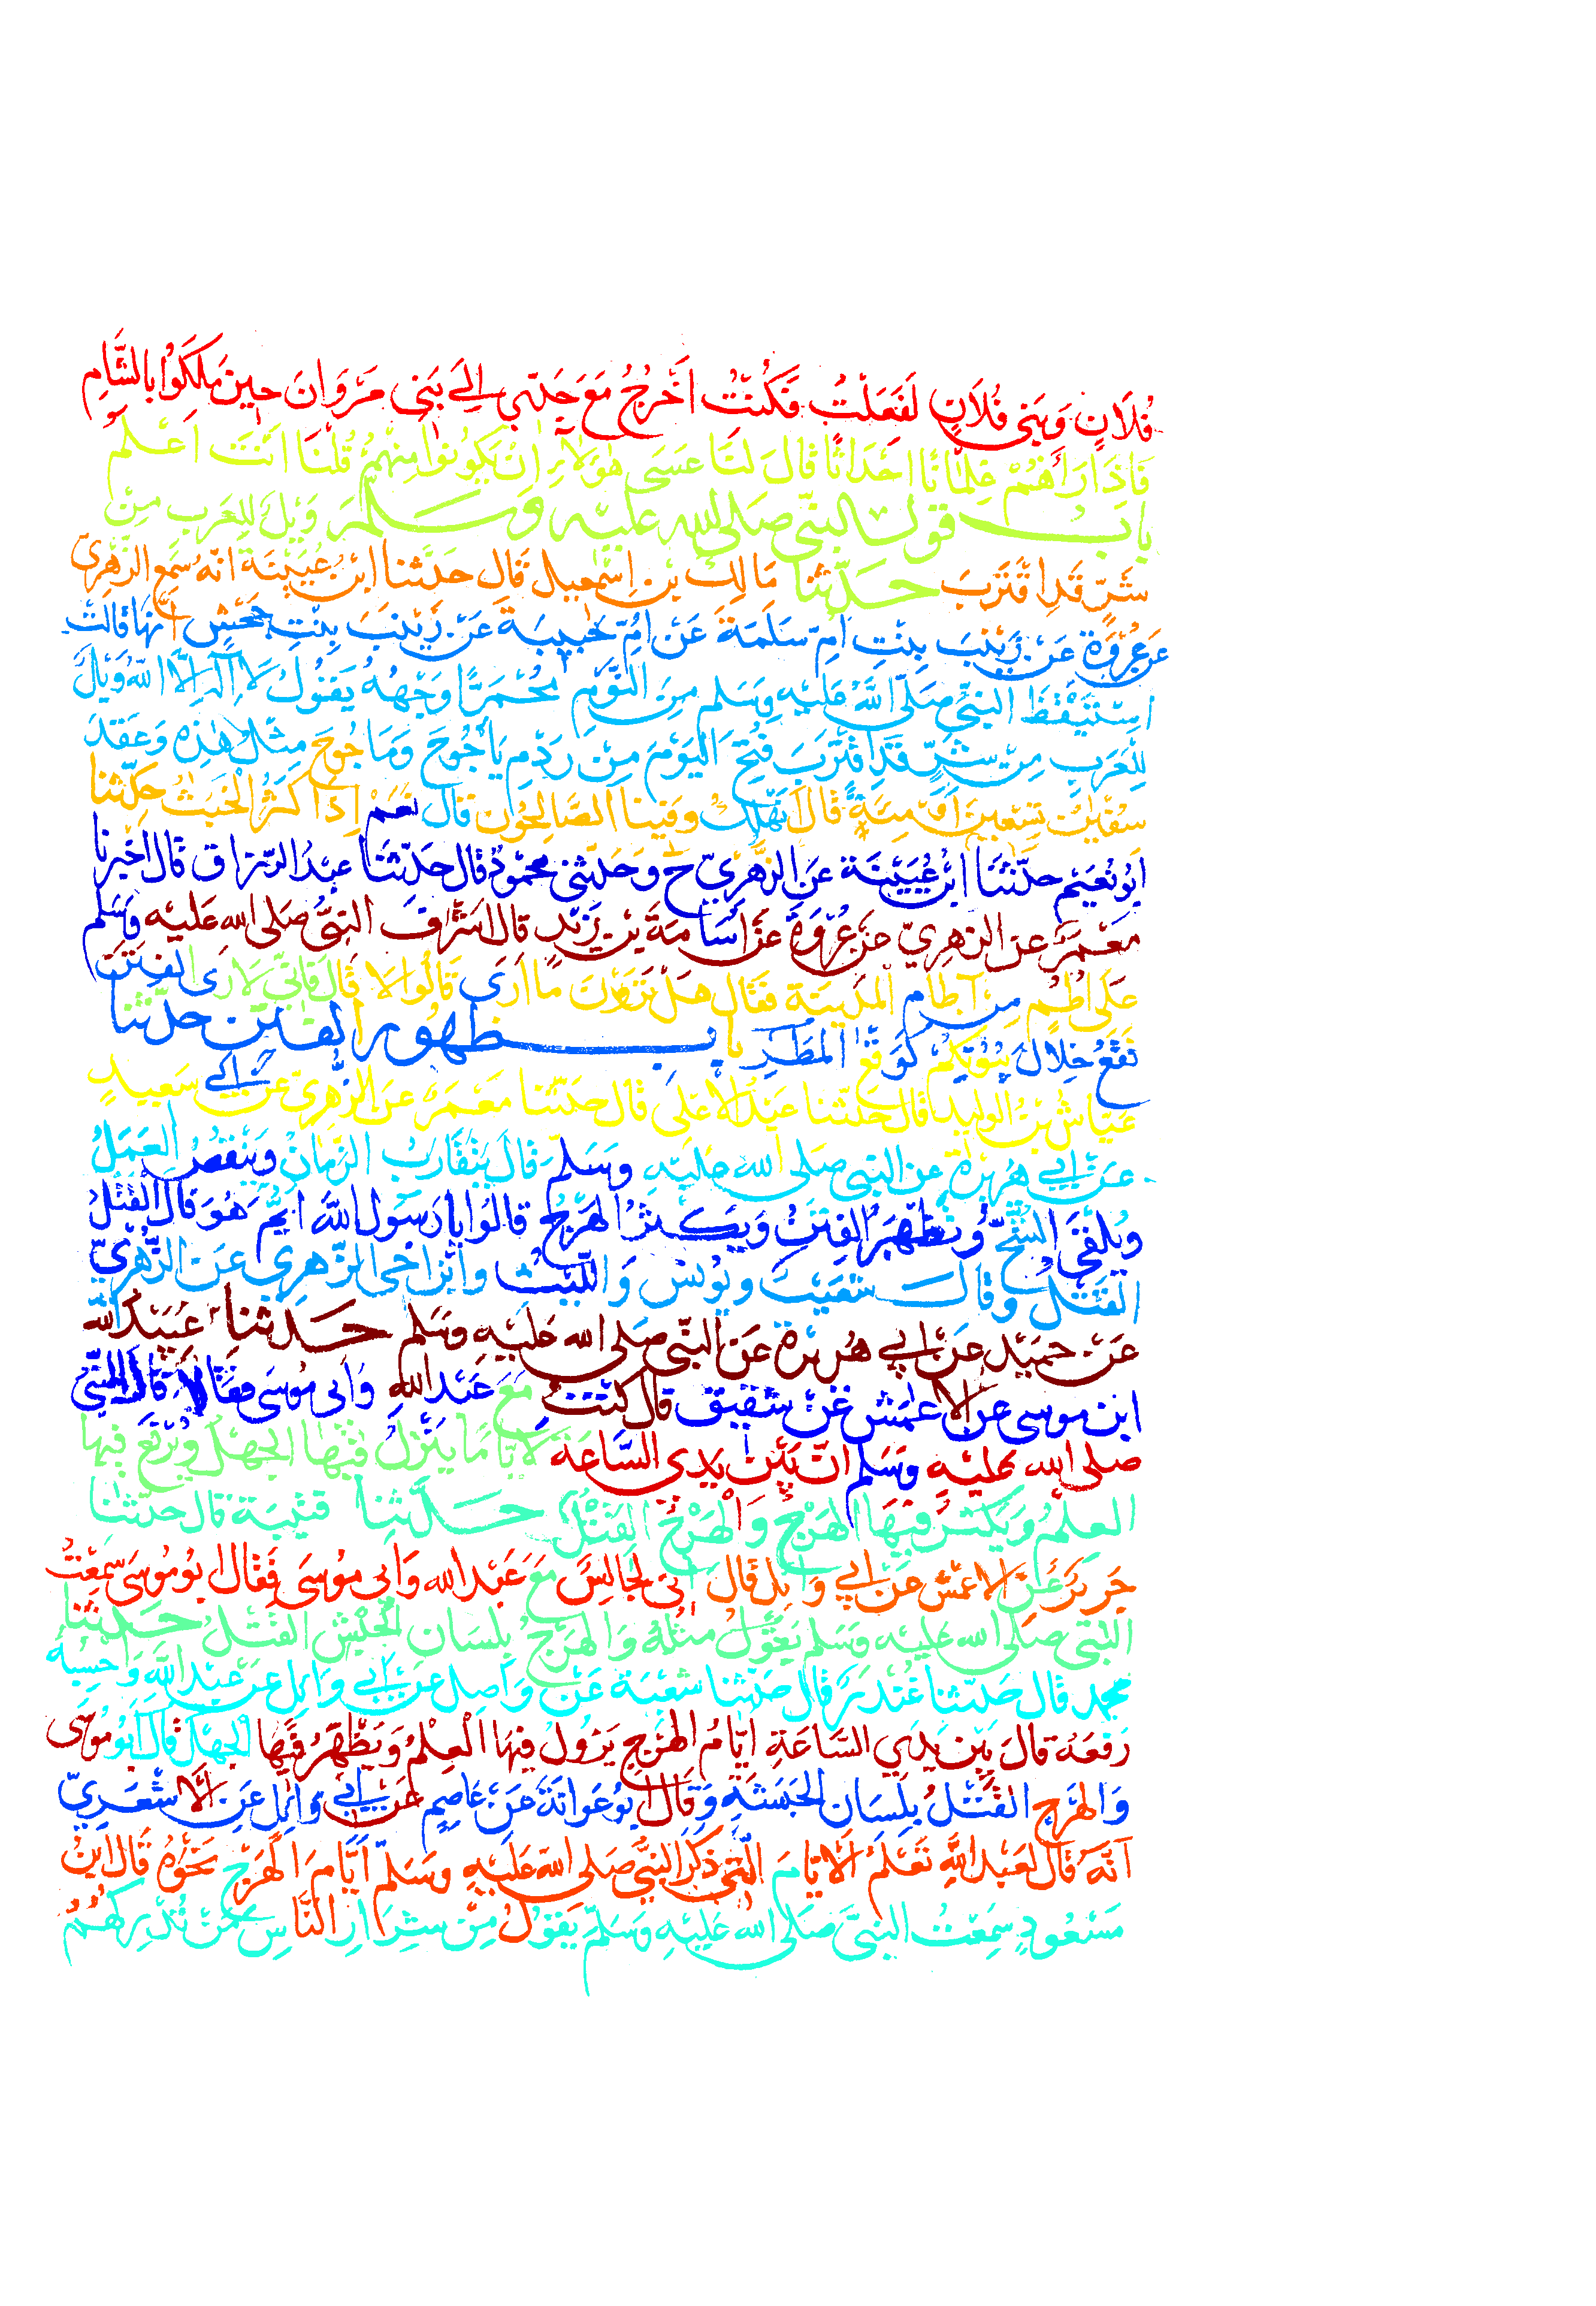 فُلَانٍ وَبَنِي فُلَانٍ لَفَعَلْتُ فَكُنْتُ اَخْرُجُ مَعَ جَدّي الِىَ بَنى مَرْوَانَ حِينَ مَلَكَوُا بِالشَّامِ
فَاِذَا رَأهُمْ غِلْمَانًا احْدَاثًا قَالَ لَنَا عَسَى هٰؤلَاءِ اَنْ يَكُونُوا مِنْهُمْ قُلْنَا انْتَ اَعْلَمُ
بابُ قول النبيّ صَلى الله عليْه وَسَلمَ وَيْلٌ لِلعَرَب مِنْ
شَرّ قَدِ اقْتَرَبَ حَدّثنا مَالك بْن اِسْمٰعيل قَال حدّثنا ابْنُ عُيَيْنَة انّهُ سَمَع الزّهْرِيّ
عَن عُرْوَة عَنْ زَيْنَبَ بِنْتِ اُمّ سَلَمَةَ عَنْ امّ حَبِيبَة عَنْ زَيْنَبَ بِنْتِ جَحْشٍ انّهَا قالتْ
اسْتَيْقَظَ النّبىُّ صَلّى اللَّهُ عَلَيْهِ وَسَلم مِنَ النَّوْم مُحْمَرًّا وَجْهُهُ يَقُولُ لَا اِلٰهَ اِلَّا اللّهُ وَيْلٌ
لِلْعَرَب مِنْ شَرٍّ قَدِ اقْتَرَبَ فُتِحَ اليَوْمَ مِنْ رَدْمِ يَاْجُوجَ وَمَاجُوجَ مِثْلُ هٰذِهِ وَعَقَدَ
سُفْيٰنُ تِسْعِينَ اَوْ مِئَةً قَالَ اَنَهْلِكُ وَفِينَا الصَّالِحُون قَال نَعَمْ اِذَا كَثُرَ الخَبَثُ حدّثنا
ابُو نُعَيْم حدّثنَا ابْنُ عُيَيْنَة عَن الزّهْرِيّ ح وَحَدّثني محْمُودٌ قال حَدّثنا عبْدُ الرّزاق قَال اخْبَرنَا
مَعْمَرٌ عن الزهرِيّ عَنْ عُرْوَةَ عَنْ اُسَامَةَ بْن زَيْدٍ قال اشْرَفَ النبيُّ صَلى الله عَليْه وَسَلم
عَلَى اُطُمٍ مِن آطَامِ المدينَة فقال هَلْ تَرَوْنَ مَا اَرَى قَالُوا لَا قَال فَاِنّي لَارَى الفِتَنَ
تَقَعُ خِلَالَ بُيُوتكُمْ كَوَقْعِ المَطَرِ بابُ ظهُور الفتن حدّثنا
عَيّاشُ بْنُ الوليد قَال حَدّثنا عَبْدُ الاعْلَى قَال حدّثنا مَعْمَرٌ عَن الزّهْرِيّ عَنْ سَعيدٍ
عَنْ ابي هُرَيْرةَ عن النبي صلى الله عليْه وَسَلمَ قَال يَتَقَارَبُ الزّمَانُ وَيَنْقُصُ العَمَلُ
وَيُلْقَى الشُّحُّ وَتَظْهَرُ الفِتَنُ وَيَكْثرُ الهَرْجُ قالوُا يا رَسُول اللّه ايُّمَ هُوَ قَال القَتْلُ
القَتْلُ وَقَالَ شعَيْبٌ وَيُونسُ وَاللّيْثُ وابْنُ اخى الزّهرِي عَن الزُّهْرِيّ
عَنْ حميْدٍ عَنْ ابي هُريرَة عَن النّبي صلى الله عليْه وسَلم حَدثنا عُبَيْدُ اللّه
ابن موسى عن الاعْمَش عَنْ شقيق قال كنْت مَعَ عَبْد اللّهِ وَابى مُوسَى فقالا قال النبيّ
صلى الله عليْه وَسَلم انّ بَيْنَ يَدى السَّاعَة لَايَّامًا يَنْزِلُ فِيهَا الجهْلُ وَيُرْفَعُ فيهَا
العِلْمُ وَيَكثرُ فيهَا الهَرْجُ وَالْهَرْجُ القَتْلُ حَدّثنا قتيْبَة قال حدّثنا
جَرِيرٌ عَنِ الاعْمَش عَنْ ابي وَائِل قَال انّى لَجَالِسٌ مَعَ عَبْد الله وَابى مُوسَى فقال ابُو مُوسَى سَمِعْتُ
النّبيَّ صَلى الله عليْه وَسَلم يَقُولُ مِثْلَهُ وَالهَرْجُ بِلسَان الحَبَش القَتْلُ حَدّثنا
محمد قال حدّثنا غُنْدَرٌ قال حدّثنا شعْبَة عَنْ وَاصِل عن ابي وَائِل عَنْ عبْدِ اللّه وَاحْسِبُهُ
رَفَعَهُ قالَ بَيْن يَدَي السَّاعَةِ ايّامُ الهَرْجِ يَزُولُ فيهَا الْعِلْمُ وَيَظْهَرُ فيهَا الجَهْلُ قَال اَبُو مُوسَى
وَالهَرْج القَتْلُ بِلِسَان الحَبَشَة وَقَال ابُو عَوَانَة عَنْ عَاصِم عَنْ ابي وَائِل عَنِ الاشْعَرِيّ
انّه قَال لِعَبْد اللَّهِ تَعْلَمُ الايّامَ التّي ذكَرَ النبيُّ صَلى اللّهُ عَلَيْه وسَلمَ ايَّامَ الهَرْجِ نَحْوَهُ قَالَ ابْنُ
مَسْعُودٍ سَمِعْتُ النبيَّ صَلى اللّهُ عَليْهِ وَسَلمَ يَقوُلُ مِنْ شِرَارِ النَّاسِ مَنْ تُدْرِكهُمُ